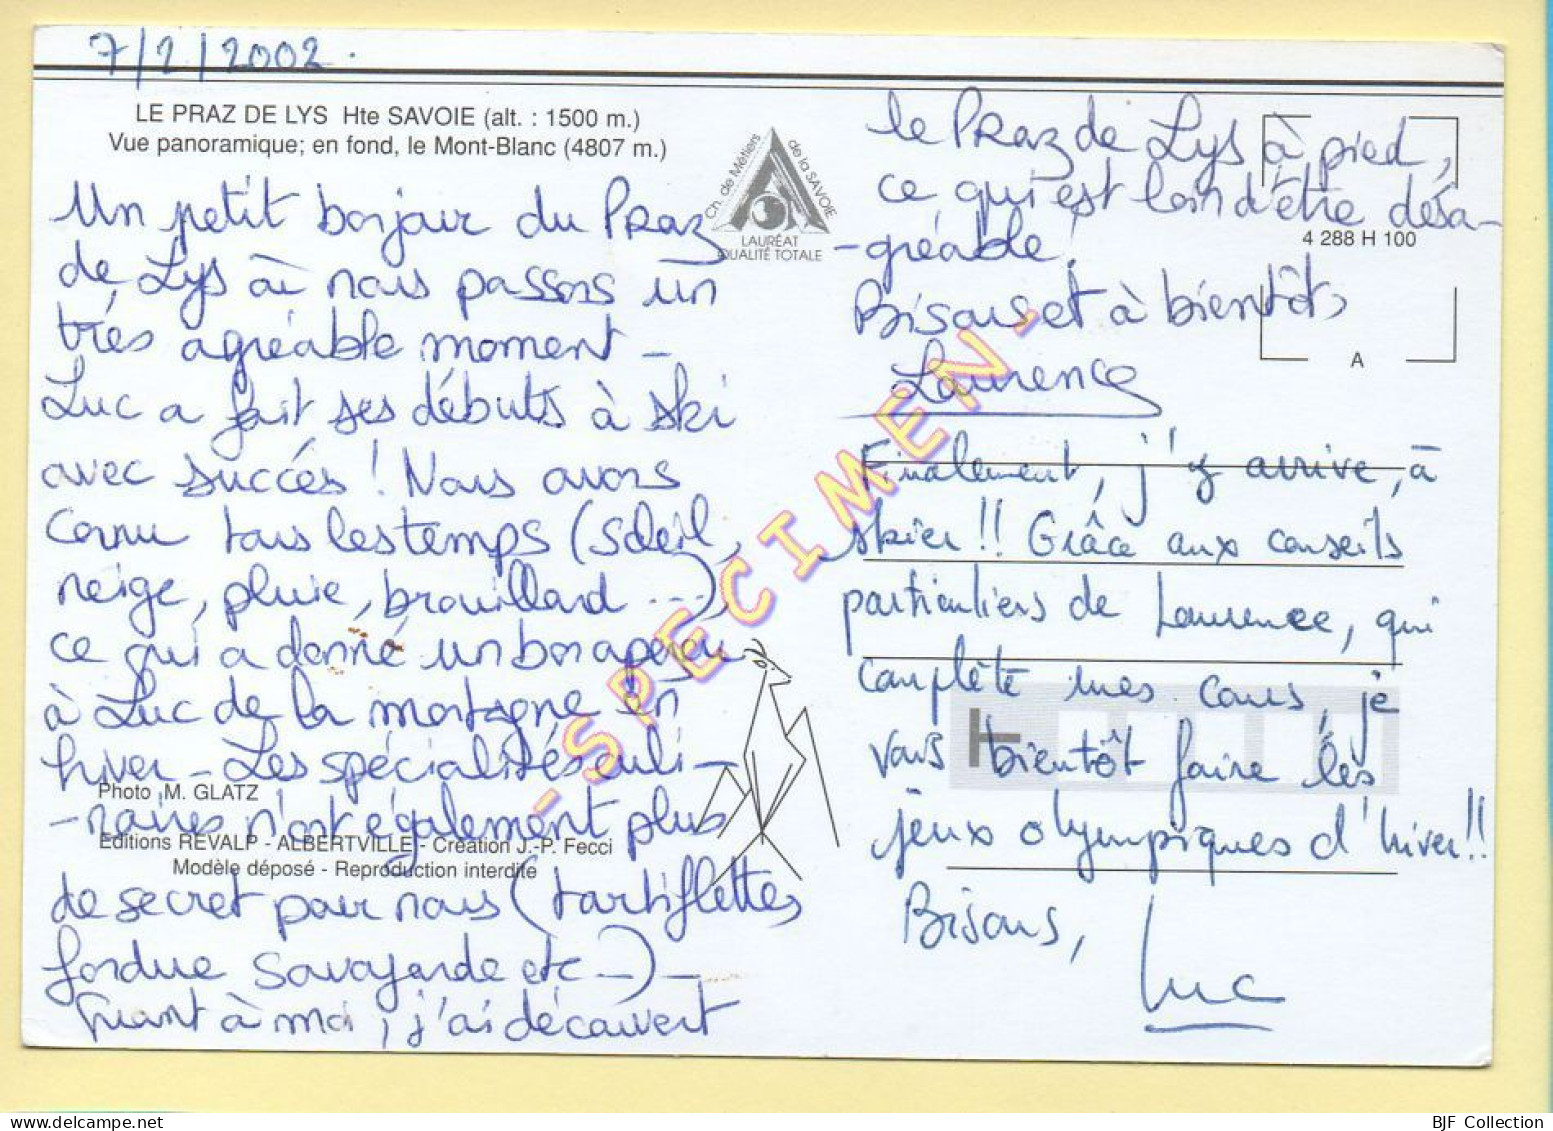 7/2/2002.
LE PRAZ DE LYS Hte SAVOIE (alt. : 1500 m.)
Vue panoramique; en fond, le Mont-Blanc (4807 m.)
Un petit bonjour du Praz
de Lys où nous passons un
très agréable moment -
Luc a fait ses débuts à ski
avec succès ! Nous avons
connu tous les temps (soleil,
neige, pluie, brouillard ...)
ce qui a donné un bon aperçu
à Luc de la montagne en
hiver - Les spécialités culi-
-naires n'ont également plus
de secret pour nous (tartiflettes
fondue savoyarde etc...) -
Quant à moi, j'ai découvert
Photo M. GLATZ
Editions REVALP - ALBERTVILLE - Création J.-P. Fecci
Modèle déposé - Reproduction interdite
Ch. de Métiers de la SAVOIE
LAURÉAT
QUALITÉ TOTALE
le Praz de Lys à pied,
ce qui est loin d'être désa-
-gréable !
Bisous et à bientôt
Laurence
4 288 H 100
A
Finalement, j'y arrive, à
skier !! Grâce aux conseils
particuliers de Laurence, qui
complète mes cours, je
vais bientôt faire les
jeux olympiques d'hiver !!
Bisous,
Luc
- SPECIMEN -
BJF Collection